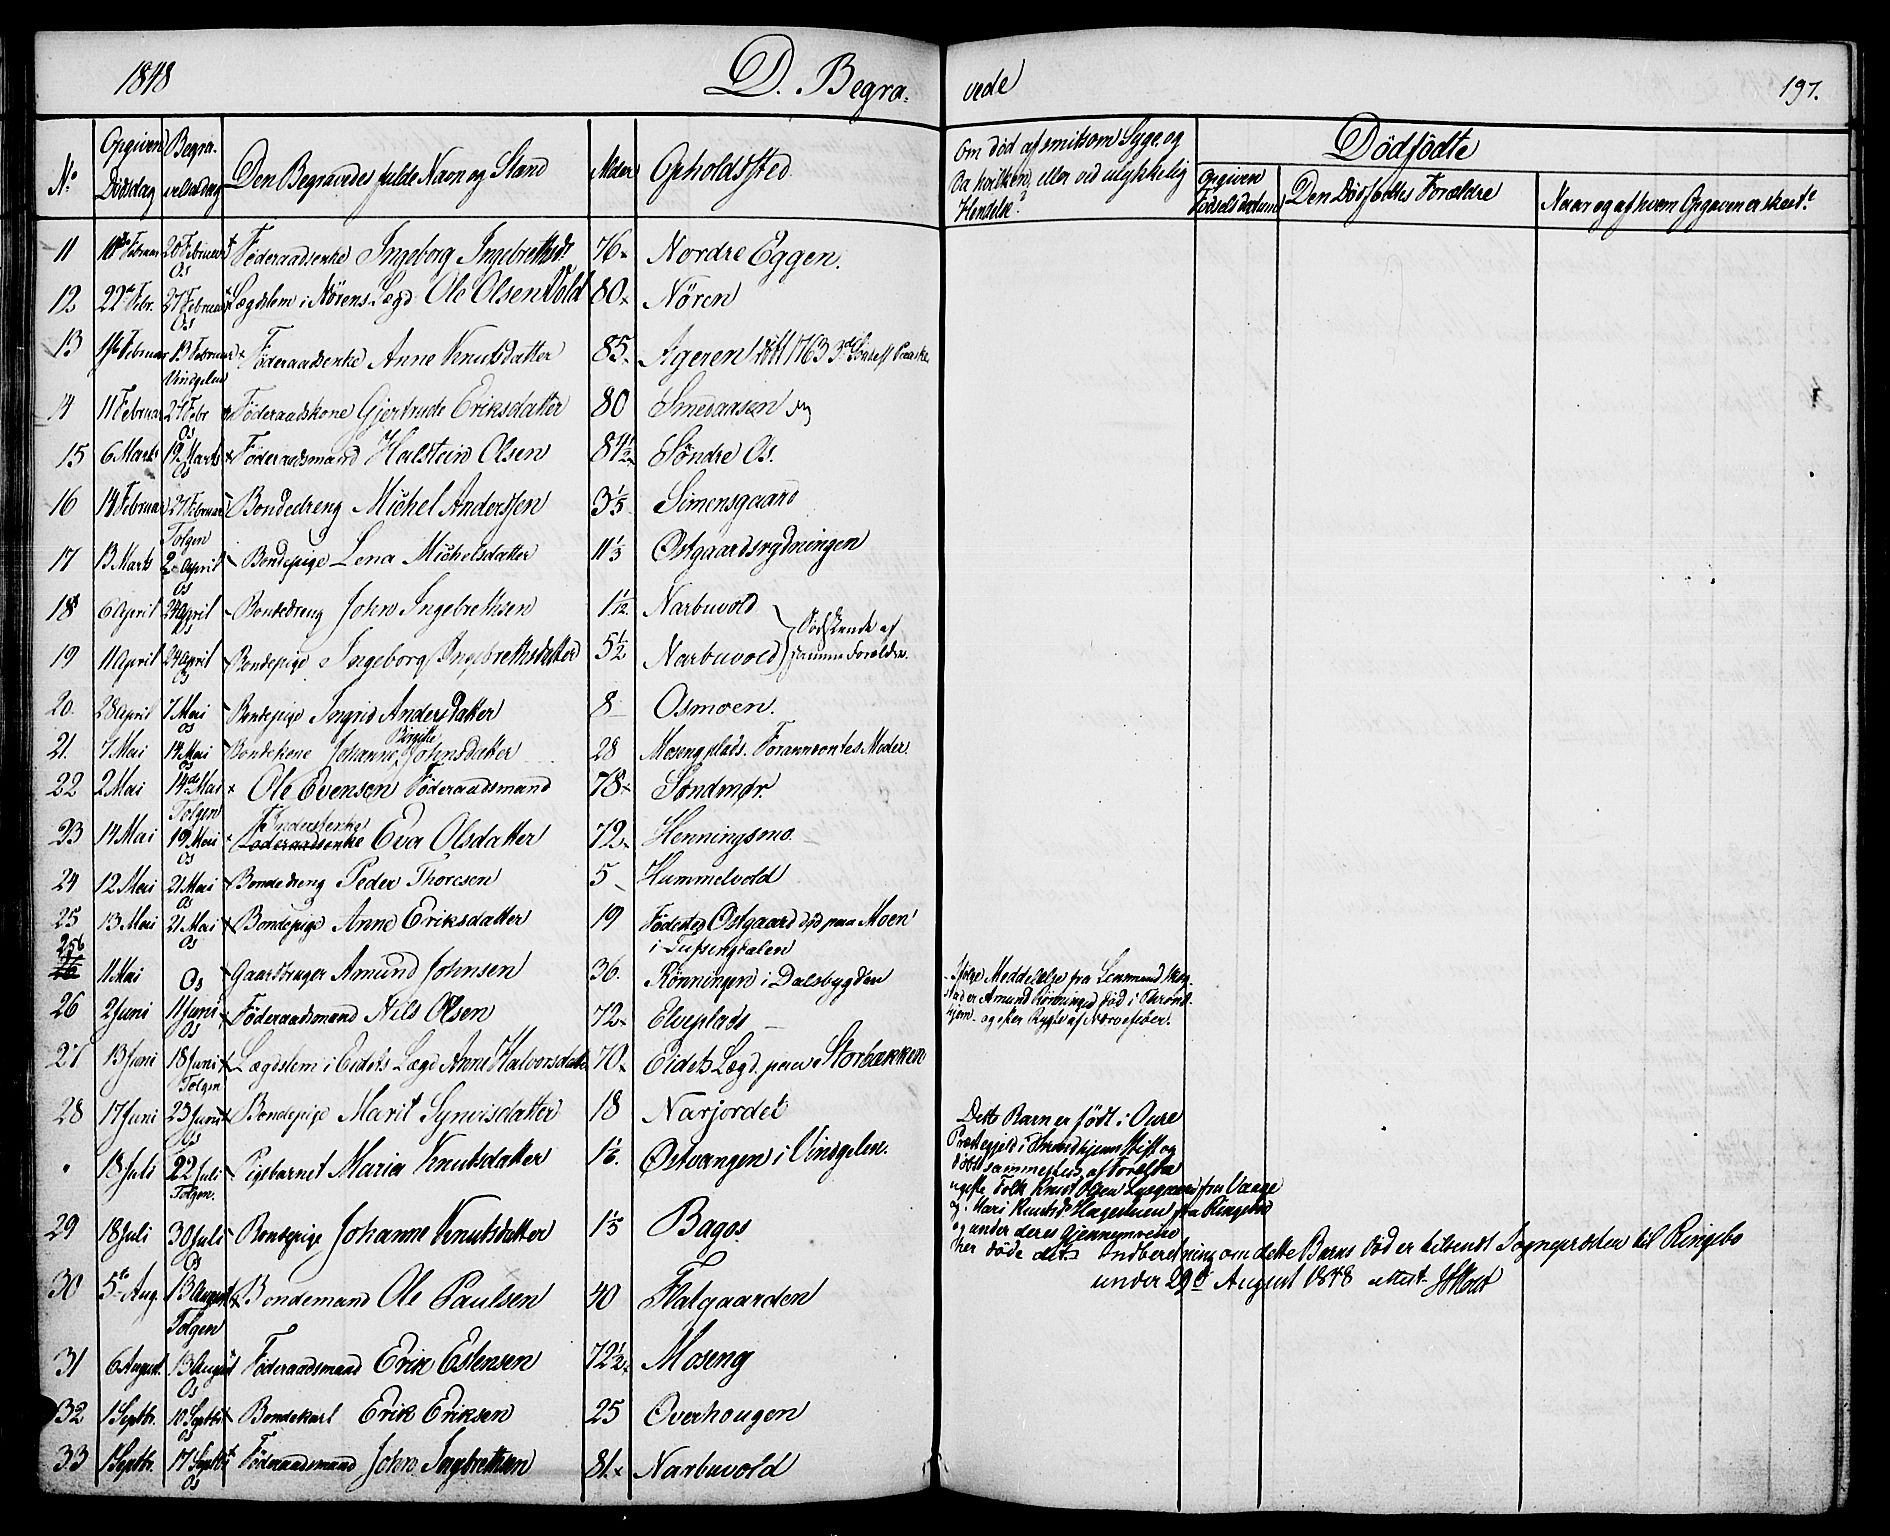 1848 D. Begra- vede 197.
No. Opgiven Dödsdag Begra-velsesdag Den Begravedes fulde Navn og Stand Alder Opholdssted Om död af smitsom Syge, og da hvilken, eller ved ulykkelig Hendelse? Dödfödte
Opgiven Födselsdatum Den Dödfödtes Forældre Naar og af hvem Opgaven er skeet?
11 10de Februar 20 Februar Os Föderaadsenke Ingeborg Ingebrethsdt 76 Nordre Eggen.
12 22de Febr. 27 Februar Os Lægdslem i Nörens Lægd Ole Olsen Vold 80 Nören
13 Februar 13 Februar Vindgelen Föderaadsenke Anne Knutsdatter 85 Ageren födt 1763 3de
14 11 Februar 27 Febr Os Föderaadskone Gjertrude Eriksdatter 80 Smedaasen
15 6 Marts 19 Marts Os Föderaadsmand Halstein Olsen 84½ Söndre Os.
16 14 Februar 27 Februar Tolgen Bondedreng Michel Anderssen 3⅓ Simensgaard
17 13 Marts 2 April Os Bondepige Lena Michelsdatter 11⅓ Østgaardsrydningen
18 6 April 24 April Os Bondedreng John Ingebrethsen 1/12 Narbuvold
19 11 April 24 April Os Bondepige Ingeborg Ingebrethsdatter 5½ Narbuvold } Södskende af samme Forældre.
20. 28 April 7 Mai Os Bondepige Ingrid Andersdatter 8 Osmoen.
21. 7 Mai 14 Mai Os Bondekone Johanne Birgitte Johnsdatter 28 Moseng plads. Forannævntes Moder.
22 2 Mai 14de Mai Tolgen Ole Evensen Föderaadsmand 78 Söndmör.
23 14 Mai 19 Mai Os Inderstenke Föderaadsenke Eva Olsdatter 72 Henningsmo
24 12 Mai 21 Mai Os Bondedreng Peder Thoresen 5 Hummelvold
25 13 Mai 21 Mai Os Bondepige Anne Eriksdatter 19 Födested Østgaard död paa Moen
i Tufsingdalen
25b 26 11 Mai Os Gaardbruger Amund Johnsen 36. Rönningen i Dalsbygden Ifölge Meddelelse fra Lensmand
er Amund Rönningen död i Thrond-
hjem og efter Rygte af Nervefeber.
26 2 Juni 11 Juni Os Föderaadsmand Nils Olsen 72 Elveplads
27 13 Juni 18 Juni Tolgen Lægdslem i Eidets Lægd Anne Halvorsdatter 70 Eidets Lægd paa Storbækken
28 17 Juni 25 Juni Os Bondepige Marit Synvisdatter 18 Narjordet
18 Juli 22 Juli Tolgen. Pigebarnet Maria Knutsdatter Østvangen i Vindgelen.
Dette Barn er födt i Oure
Præstegjeld i Throndhjems Stift og
döbt sammesteds af Forældre
ugifte Folk Knut Olsen fra Vaage
og Mari Knutsd. Hagestuen fra Ringebo
og under deres Gjennemreise
her döde det. Indberetning om dette Barns Död er tilsendt Sognepræsten til Ringebo
under 29d August 1848 attest.
29 18 Juli 30 Juli Os Bondepige Johanne Knutsdatter 1⅓ Bagos
30 5te Aug. 13 August Tolgen Bondemand Ole Paulsen 40 Flatgaarden
31 6 August. 13 August Os Föderaadsmand Erik Estensen 72½ Moseng
32 1 Septbr. 10 Septbr Os Bondekarl Erik Eriksen 25 Overhougen
33 1 Septbr. 17 Septbr Os Föderaadsmand John Ingebrethsen 81 Narbuvold